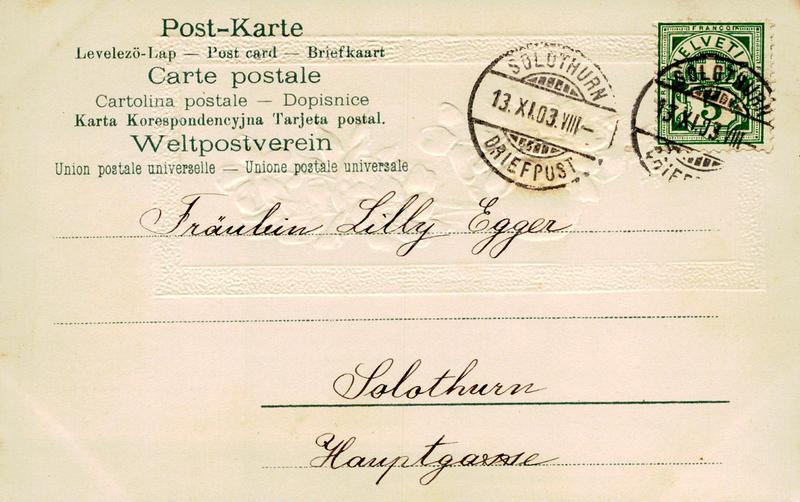 Post-Karte
Levelezö-Lap — Post card — Briefkaart
Carte postale
Cartolina postale — Dopisnice
Karta Korespondencyjna Tarjeta postal.
Weltpostverein
Union postale universelle — Unione postale universale
SOLOTHURN
13.XI.03.VIII—
BRIEFPUST
FRANCO
HELVETIA
5
SOLOTHURN
13.XI.03.VIII
Fräulein Lilly Egger
Solothurn
Hauptgasse